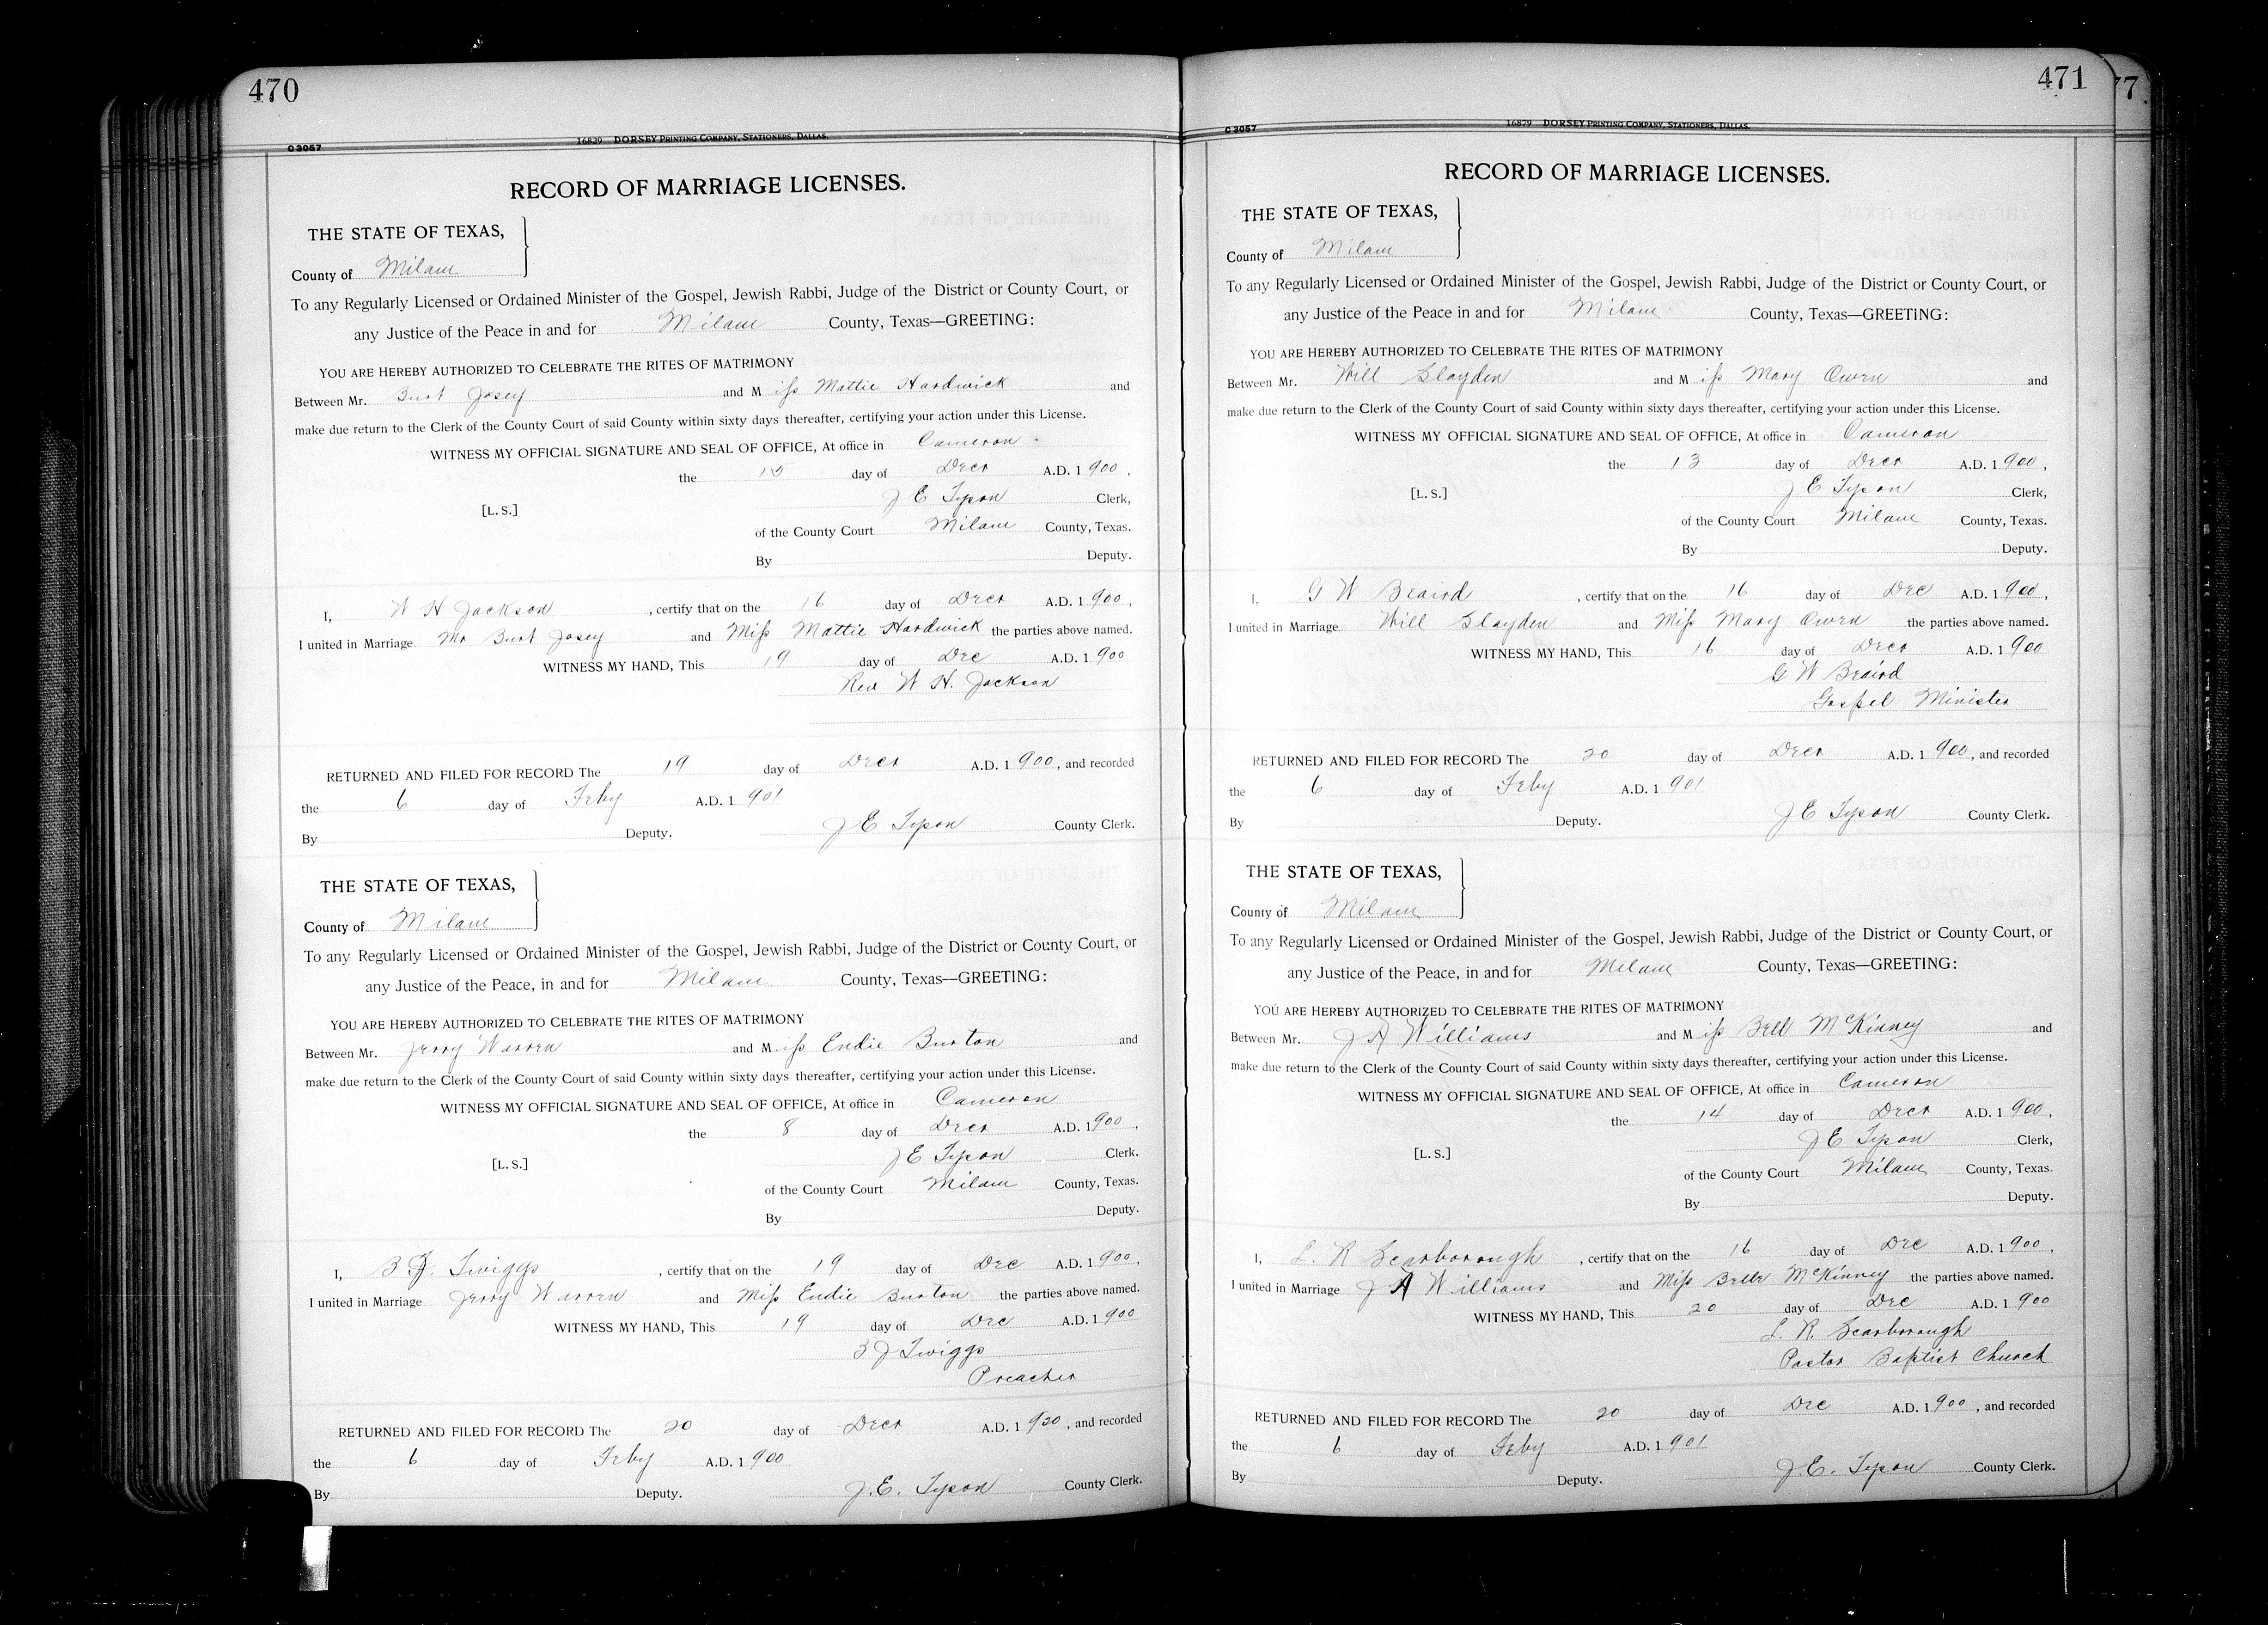 470
C 3057
16829 DORSEY PRINTING COMPANY, STATIONERS, DALLAS.
RECORD OF MARRIAGE LICENSES.
THE STATE OF TEXAS,
County of Milam
To any Regularly Licensed or Ordained Minister of the Gospel, Jewish Rabbi, Judge of the District or County Court, or
any Justice of the Peace in and for Milam County, Texas—GREETING:
YOU ARE HEREBY AUTHORIZED TO CELEBRATE THE RITES OF MATRIMONY
Between Mr. Burt Josey and Miss Mattie Hardwick and
make due return to the Clerk of the County Court of said County within sixty days thereafter, certifying your action under this License.
WITNESS MY OFFICIAL SIGNATURE AND SEAL OF OFFICE, At office in Cameron
the 15 day of Decr A.D. 1900,
J E Tyson Clerk,
[L. S.]
of the County Court Milam County, Texas.
By Deputy.
I, W H Jackson, certify that on the 16 day of Decr A.D. 1900,
I united in Marriage Mr Burt Josey and Miss Mattie Hardwick the parties above named.
WITNESS MY HAND, This 19 day of Dec A.D. 1900
Rev W H. Jackson
RETURNED AND FILED FOR RECORD The 19 day of Decr A.D. 1900, and recorded
the 6 day of Feby A.D. 1901
By Deputy. J E Tyson County Clerk.
THE STATE OF TEXAS,
County of Milam
To any Regularly Licensed or Ordained Minister of the Gospel, Jewish Rabbi, Judge of the District or County Court, or
any Justice of the Peace, in and for Milam County, Texas—GREETING:
YOU ARE HEREBY AUTHORIZED TO CELEBRATE THE RITES OF MATRIMONY
Between Mr. Jerry Warren and Miss Eudie Burton and
make due return to the Clerk of the County Court of said County within sixty days thereafter, certifying your action under this License.
WITNESS MY OFFICIAL SIGNATURE AND SEAL OF OFFICE, At office in Cameron
the 8 day of Decr A.D. 1900,
J E Tyson Clerk.
[L. S.]
of the County Court Milam County, Texas.
By Deputy.
I, B J. Twiggs, certify that on the 19 day of Dec A.D. 1900,
I united in Marriage Jerry Warren and Miss Eudie Burton the parties above named.
WITNESS MY HAND, This 19 day of Dec A.D. 1900
B J Twiggs
Preacher
RETURNED AND FILED FOR RECORD The 20 day of Decr A.D. 1920, and recorded
the 6 day of Feby A.D. 1900
By Deputy. J. E. Tyson County Clerk.
471
77
C 3057
16879 DORSEY PRINTING COMPANY, STATIONERS, DALLAS.
RECORD OF MARRIAGE LICENSES.
THE STATE OF TEXAS,
County of Milam
To any Regularly Licensed or Ordained Minister of the Gospel, Jewish Rabbi, Judge of the District or County Court, or
any Justice of the Peace in and for Milam County, Texas—GREETING:
YOU ARE HEREBY AUTHORIZED TO CELEBRATE THE RITES OF MATRIMONY
Between Mr. Will Slayden and Miss Mary Owen and
make due return to the Clerk of the County Court of said County within sixty days thereafter, certifying your action under this License.
WITNESS MY OFFICIAL SIGNATURE AND SEAL OF OFFICE, At office in Cameron
the 13 day of Decr A.D. 1900,
J E Tyson Clerk,
[L. S.]
of the County Court Milam County, Texas.
By Deputy.
I, G W Beaird, certify that on the 16 day of Dec A.D. 1900,
I united in Marriage Will Slayden and Miss Mary Owen the parties above named.
WITNESS MY HAND, This 16 day of Decr A.D. 1900
G W Beaird
Gospel Minister
RETURNED AND FILED FOR RECORD The 20 day of Decr A.D. 1900, and recorded
the 6 day of Feby A.D. 1901
By Deputy. J E Tyson County Clerk.
THE STATE OF TEXAS,
County of Milam
To any Regularly Licensed or Ordained Minister of the Gospel, Jewish Rabbi, Judge of the District or County Court, or
any Justice of the Peace, in and for Milam County, Texas—GREETING:
YOU ARE HEREBY AUTHORIZED TO CELEBRATE THE RITES OF MATRIMONY
Between Mr. J A Williams and Miss Bell McKinney and
make due return to the Clerk of the County Court of said County within sixty days thereafter, certifying your action under this License.
WITNESS MY OFFICIAL SIGNATURE AND SEAL OF OFFICE, At office in Cameron
the 14 day of Decr A.D. 1900,
J E Tyson Clerk,
[L. S.]
of the County Court Milam County, Texas.
By Deputy.
I, L. R Scarborough, certify that on the 16 day of Dec A.D. 1900,
I united in Marriage J A Williams and Miss Belle McKinney the parties above named.
WITNESS MY HAND, This 20 day of Dec A.D. 1900
L. R. Scarborough
Pastor Baptist Church
RETURNED AND FILED FOR RECORD The 20 day of Dec A.D. 1900, and recorded
the 6 day of Feby A.D. 1901
By Deputy. J. E. Tyson County Clerk.